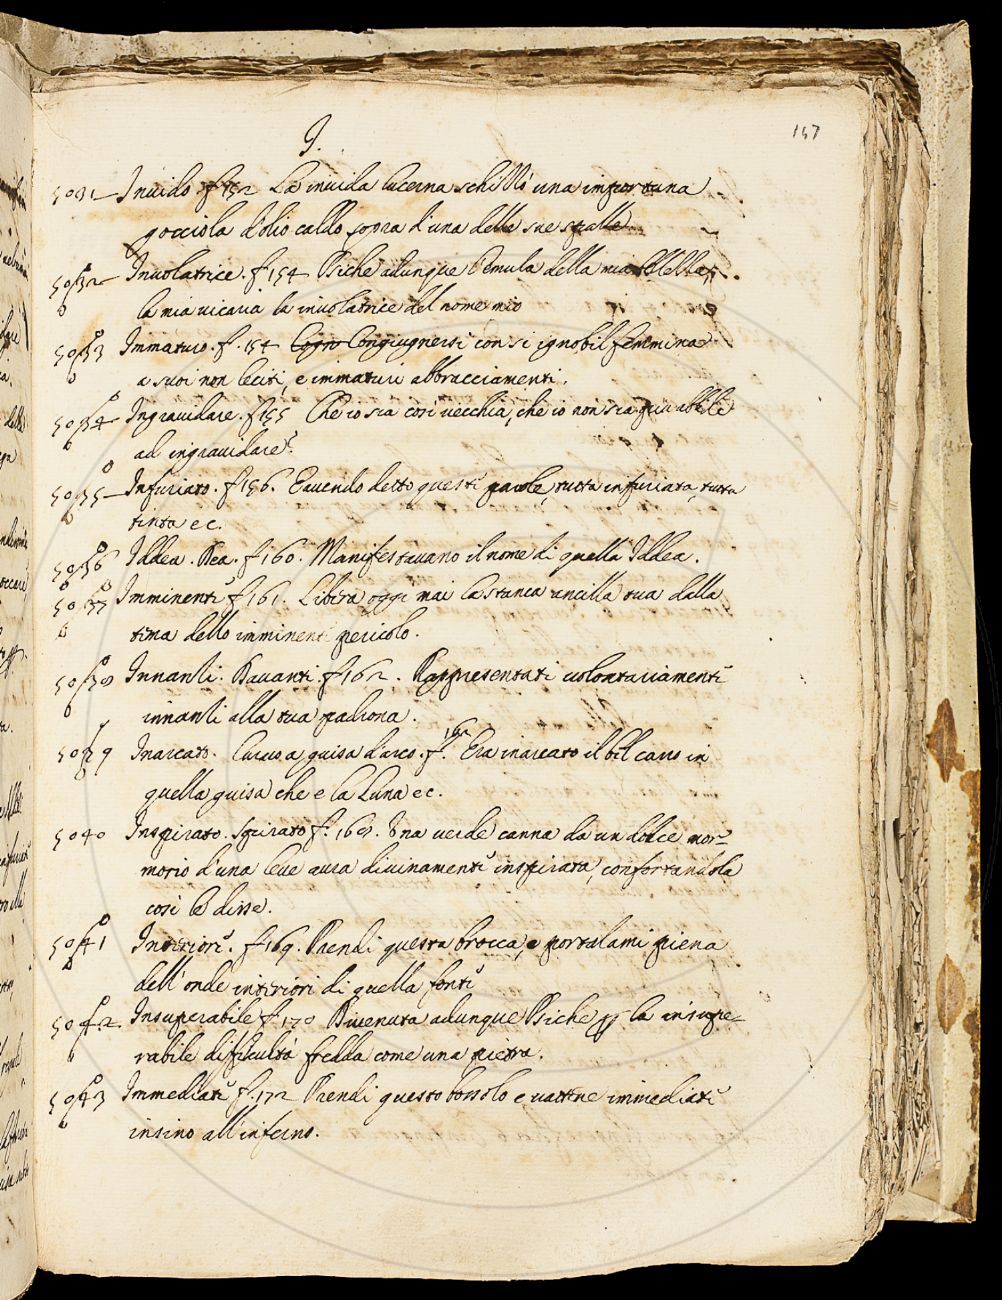 147
I.
5031 Invido f 152 La invida lucerna schizzò una importuna
gocciola d'olio caldo sopra d'una delle sue spalle
5032 Involatrice. f 154 Psiche adunque l'emula della mia
la mia vicaria la involatrice del nome mio
5033 Immaturo. f. 154 Congiugnersi con sì ignobil femmina
a suoi non leciti, e immaturi abbracciamenti.
5034 Ingravidare. f 155 Che io sia così vecchia, che io non sia più abile
ad ingravidare?
5035 Infuriato. f 156. E avendo detto questi parole, tutta infuriata, tutta
tinta ec.
5036 Iddea. Dea. f 160. Manifestavano il nome di quella Iddea.
5037 Imminenti f 161. Libera oggi mai la stanca ancilla tua dalla
tema dello imminenti pericolo.
5038 Innanzi. Davanti. f 162. Rappresentati volontariamenti
innanzi alla tua padrona.
5039 Inarcato. Curvo a guisa d'arco. f. 162 Era inarcato il bel carro in
quella guisa che e la Luna ec.
5040 Inspirato. Spirato f. 168. Una verde canna da un dolce mor-
morio d'una leve aura divinamenti inspirata, confortandola
così le disse.
5041 Interiori. f 169. Prendi questa brocca, e portalami piena
dell'onde interiori di quella fonti
5042. Insuperabile f 170 Divenuta adunque Psiche per la insupe-
rabile difficultà fredda come una pietra.
5043 Immediati f. 172 Prendi questo bossolo e vattene immediati
insino all'inferno.